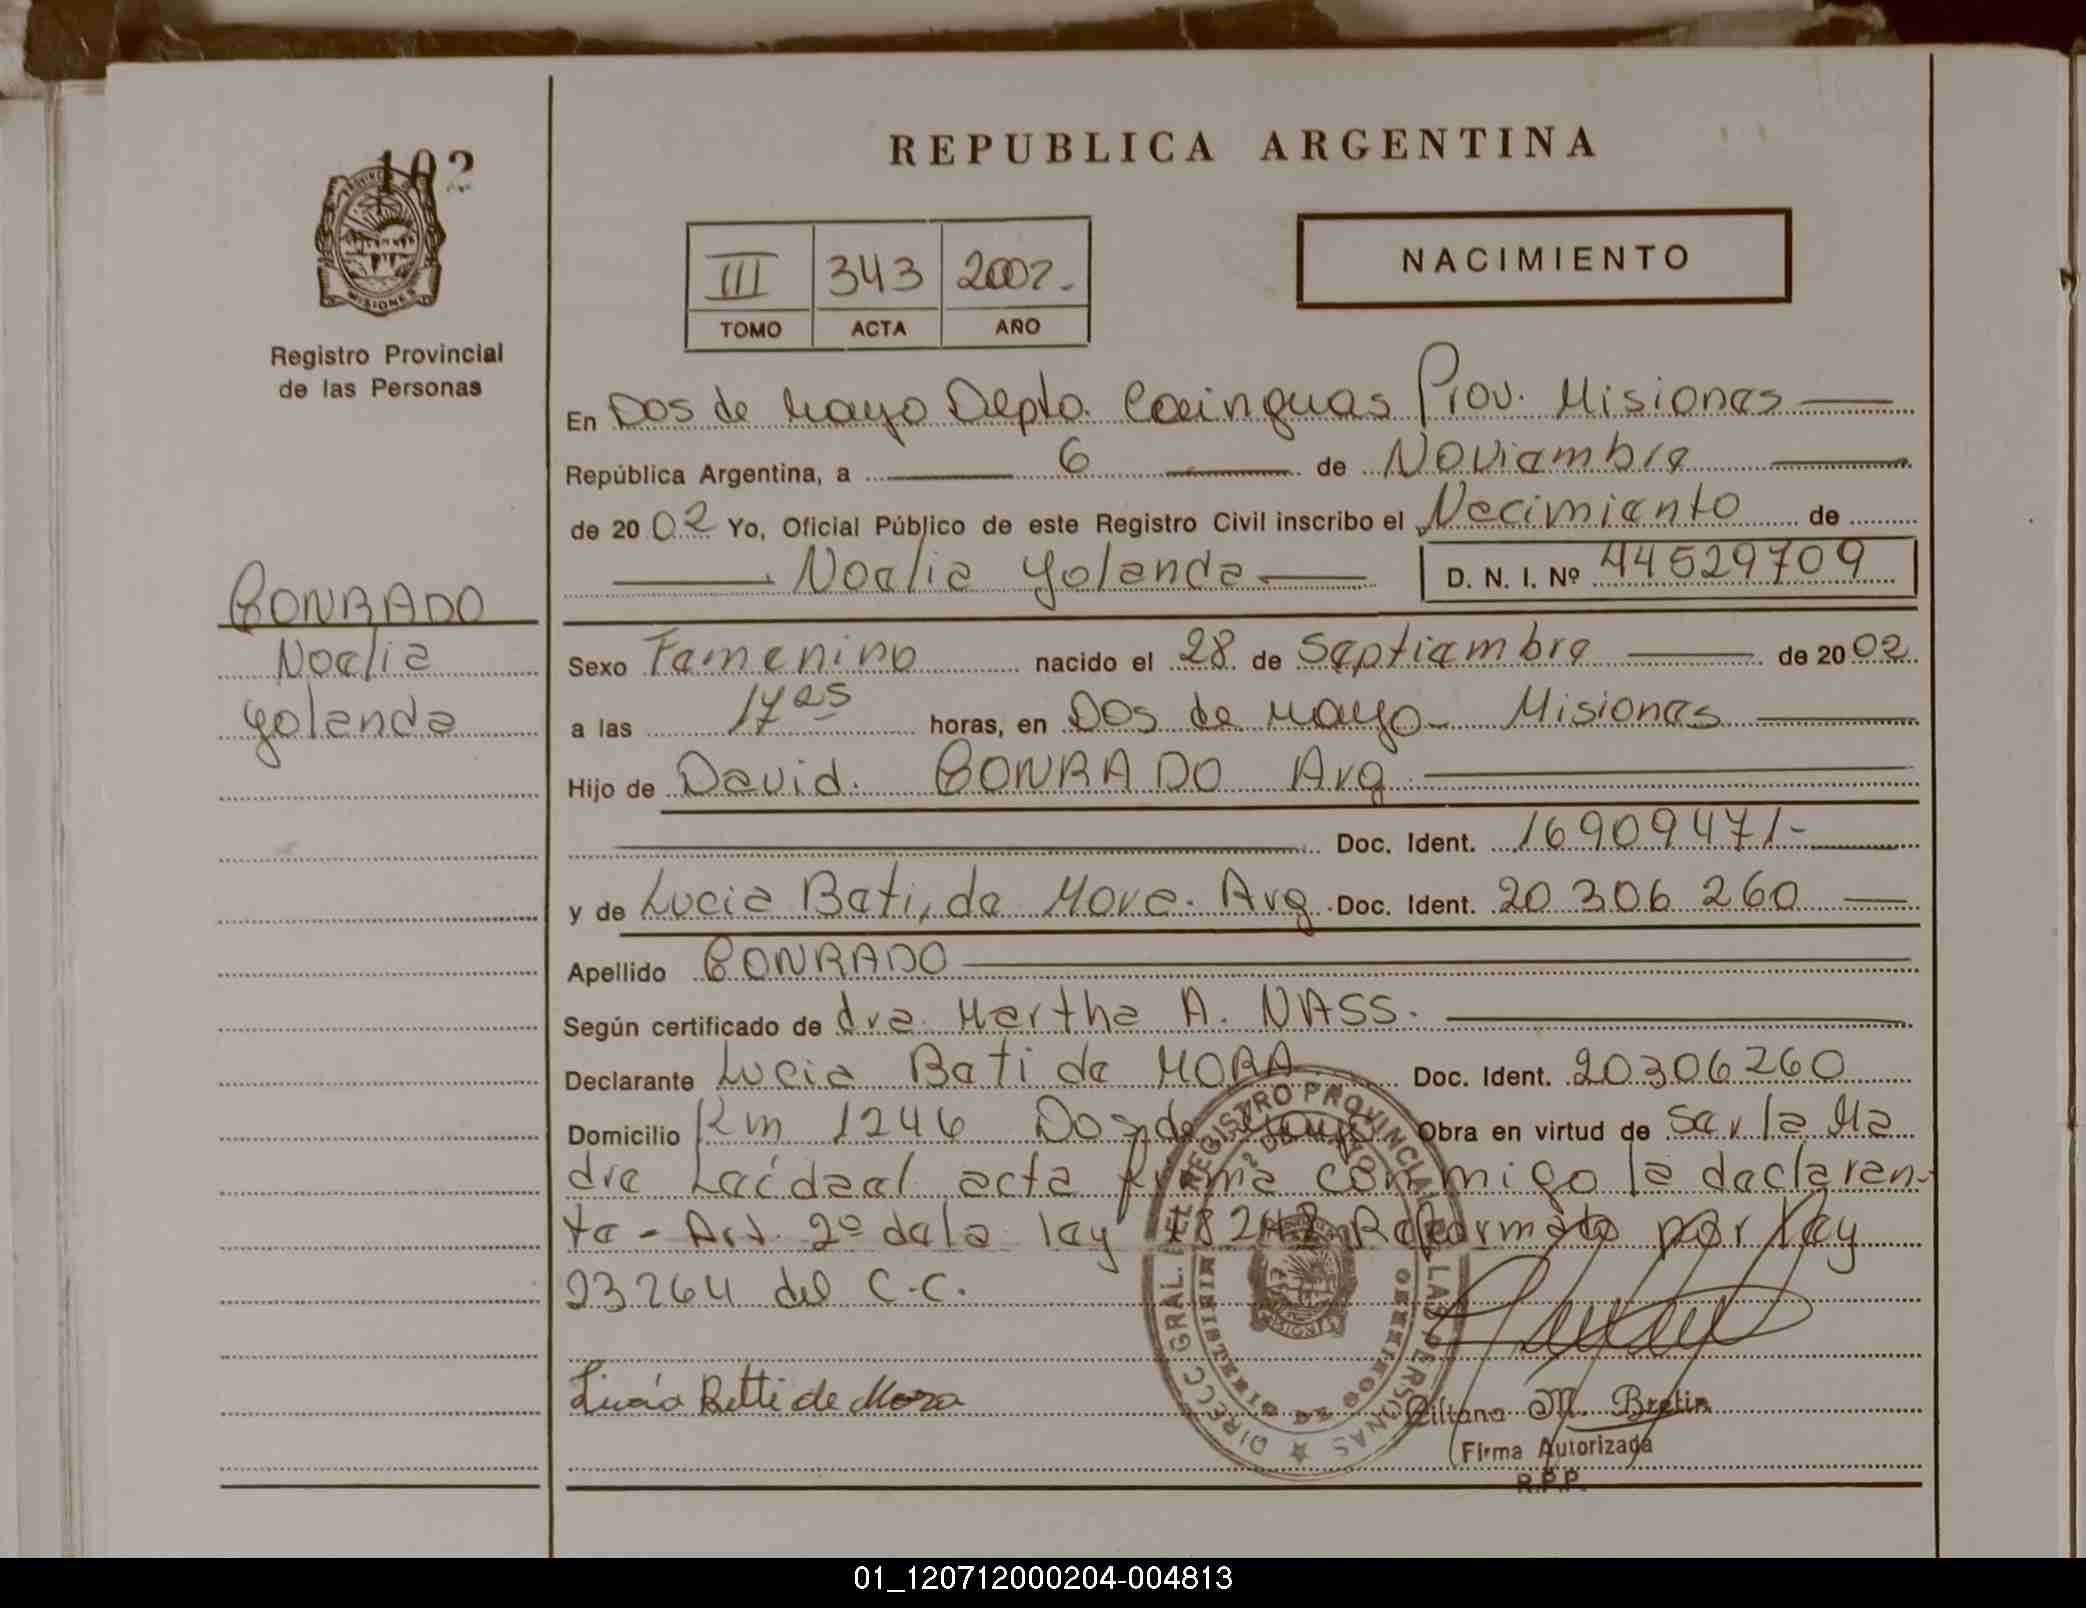 REPUBLICA ARGENTINA
102
PROVINCIA
MISIONES
Registro Provincial
de las Personas
III 343 2002.-
TOMO ACTA AÑO
NACIMIENTO
En Dos de Mayo Depto. Cainguas Prov. Misiones
República Argentina, a 6 de Noviembre
de 2002 Yo, Oficial Público de este Registro Civil inscribo el Nacimiento de
Noelia Yolanda D. N. I. Nº 44529709
CONRADO
Noelia
Yolanda
Sexo Femenino nacido el 28 de Septiembre de 2002
a las 17 25 horas, en Dos de Mayo - Misiones
Hijo de David. CONRADO Arg.
Doc. Ident. 16909471-
y de Lucia Bati, de Mora. Arg. Doc. Ident. 20 306 260
Apellido CONRADO
Según certificado de dra. Martha A. NASS.
Declarante Lucia Bati de MORA Doc. Ident. 20306260
Domicilio Km 1246 Dos de Mayo Obra en virtud de Ser la Ma
dre Leídael acta firma conmigo la declaran-
te - Art. 2º dela ley 18248 Reformado por ley
23264 del C.C.
Lucía Betti de Mora
DIRECC. GRAL. DEL REGISTRO PROVINCIAL DE LAS PERSONAS
MISIONES
M. Bretin
Firma Autorizada
R.P.P.
01_120712000204-004813